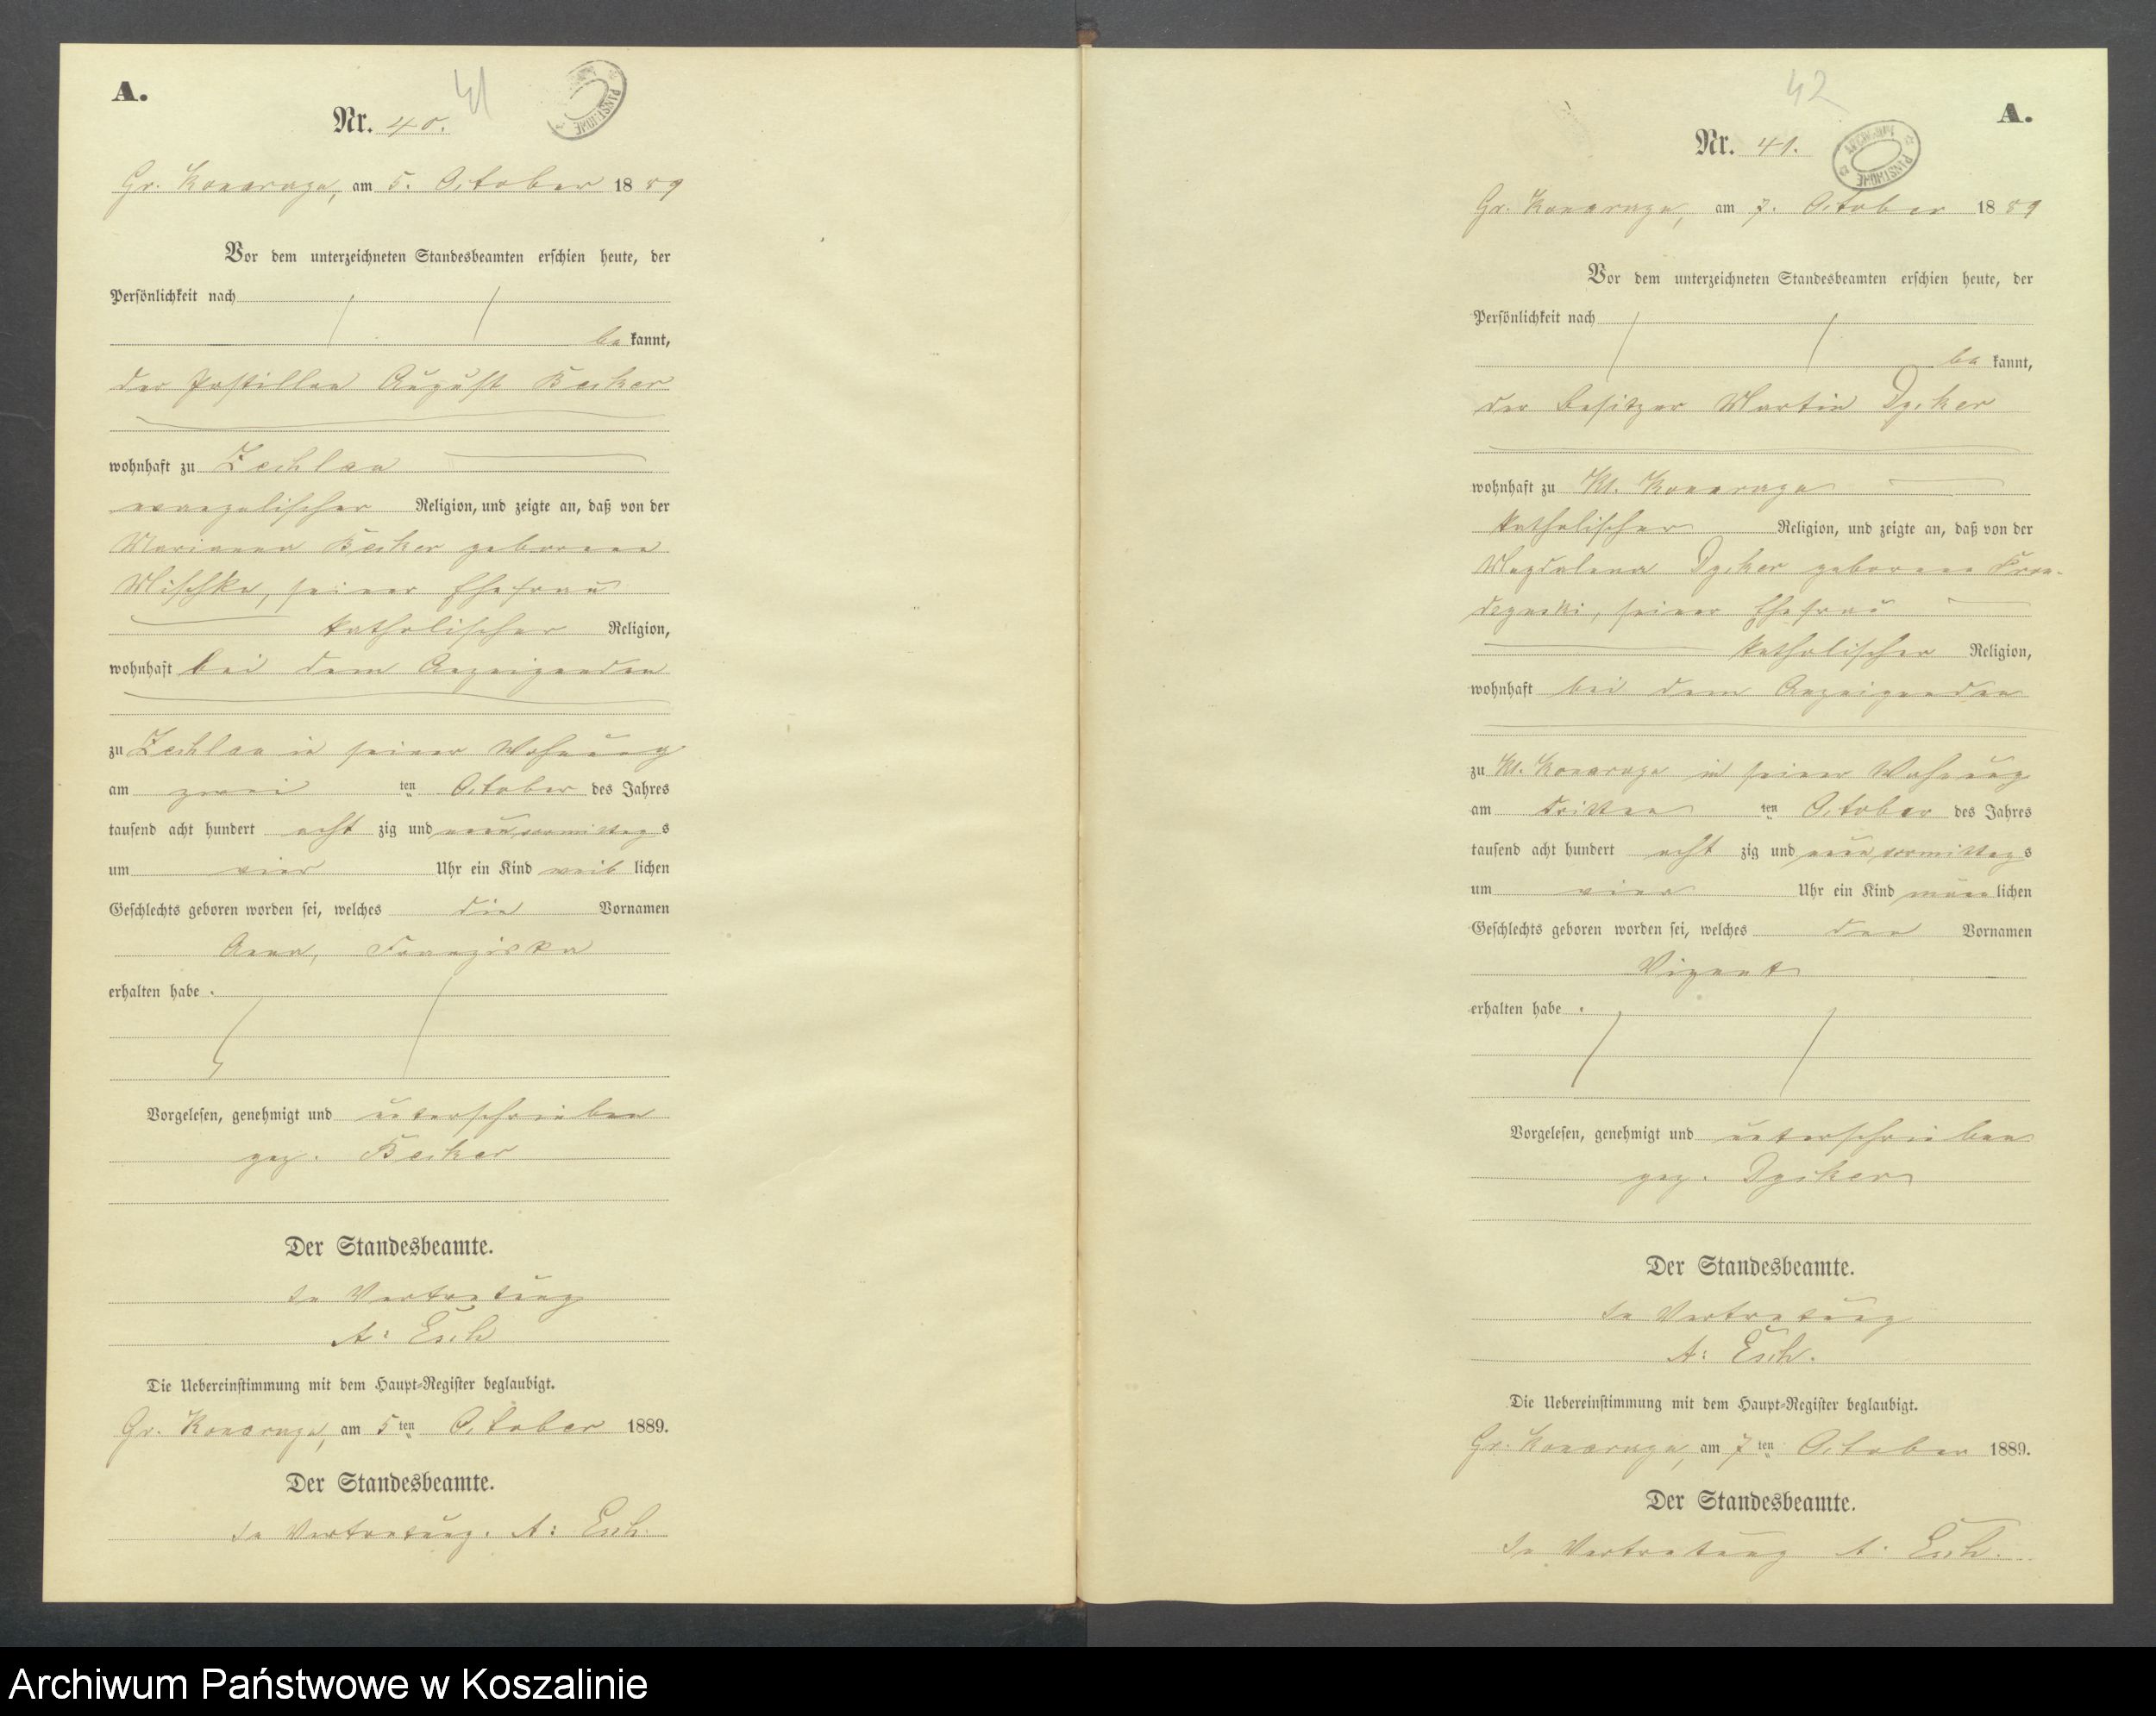 A.
41
Nr. 40.
Gr. Konarczyn, am 5. October 1889
Vor dem unterzeichneten Standesbeamten erschien heute, der
Persönlichkeit nach
be kannt,
der Postillon August Becker
wohnhaft zu Zechlau
evangelischer Religion, und zeigte an, daß von der
Marianna Becker geborene
Mischke, seiner Ehefrau
katholischer Religion,
wohnhaft bei dem Anzeigenden
zu Zechlau in seiner Wohnung
am zwei ten October des Jahres
tausend acht hundert acht zig und neun vormittags
um vier Uhr ein Kind weib lichen
Geschlechts geboren worden sei, welches die Vornamen
Anna, Franziska
erhalten habe.
Vorgelesen, genehmigt und unterschrieben
gez. Becker
Der Standesbeamte.
In Vertretung
A: Esch
Die Uebereinstimmung mit dem Haupt-Register beglaubigt.
Gr. Konarczyn, am 5ten October 1889.
Der Standesbeamte.
In Vertretung. A: Esch.
42
A.
Nr. 41.
Gr. Konarczyn, am 7. October 1889
Vor dem unterzeichneten Standesbeamten erschien heute, der
Persönlichkeit nach
be kannt,
der Besitzer Martin Dycker
wohnhaft zu Kl. Konarczyn
katholischer Religion, und zeigte an, daß von der
Magdalena Dycker geborene
seiner Ehefrau
katholischer Religion,
wohnhaft bei dem Anzeigenden
zu Kl. Konarczyn in seiner Wohnung
am dritten ten October des Jahres
tausend acht hundert acht zig und neun vormittags
um vier Uhr ein Kind männ lichen
Geschlechts geboren worden sei, welches den Vornamen
Vizent
erhalten habe.
Vorgelesen, genehmigt und unterschrieben
gez. Dycker
Der Standesbeamte.
In Vertretung
A: Esch.
Die Uebereinstimmung mit dem Haupt-Register beglaubigt.
Gr. Konarczyn, am 7ten October 1889.
Der Standesbeamte.
In Vertretung A. Esch.
Archiwum Państwowe w Koszalinie